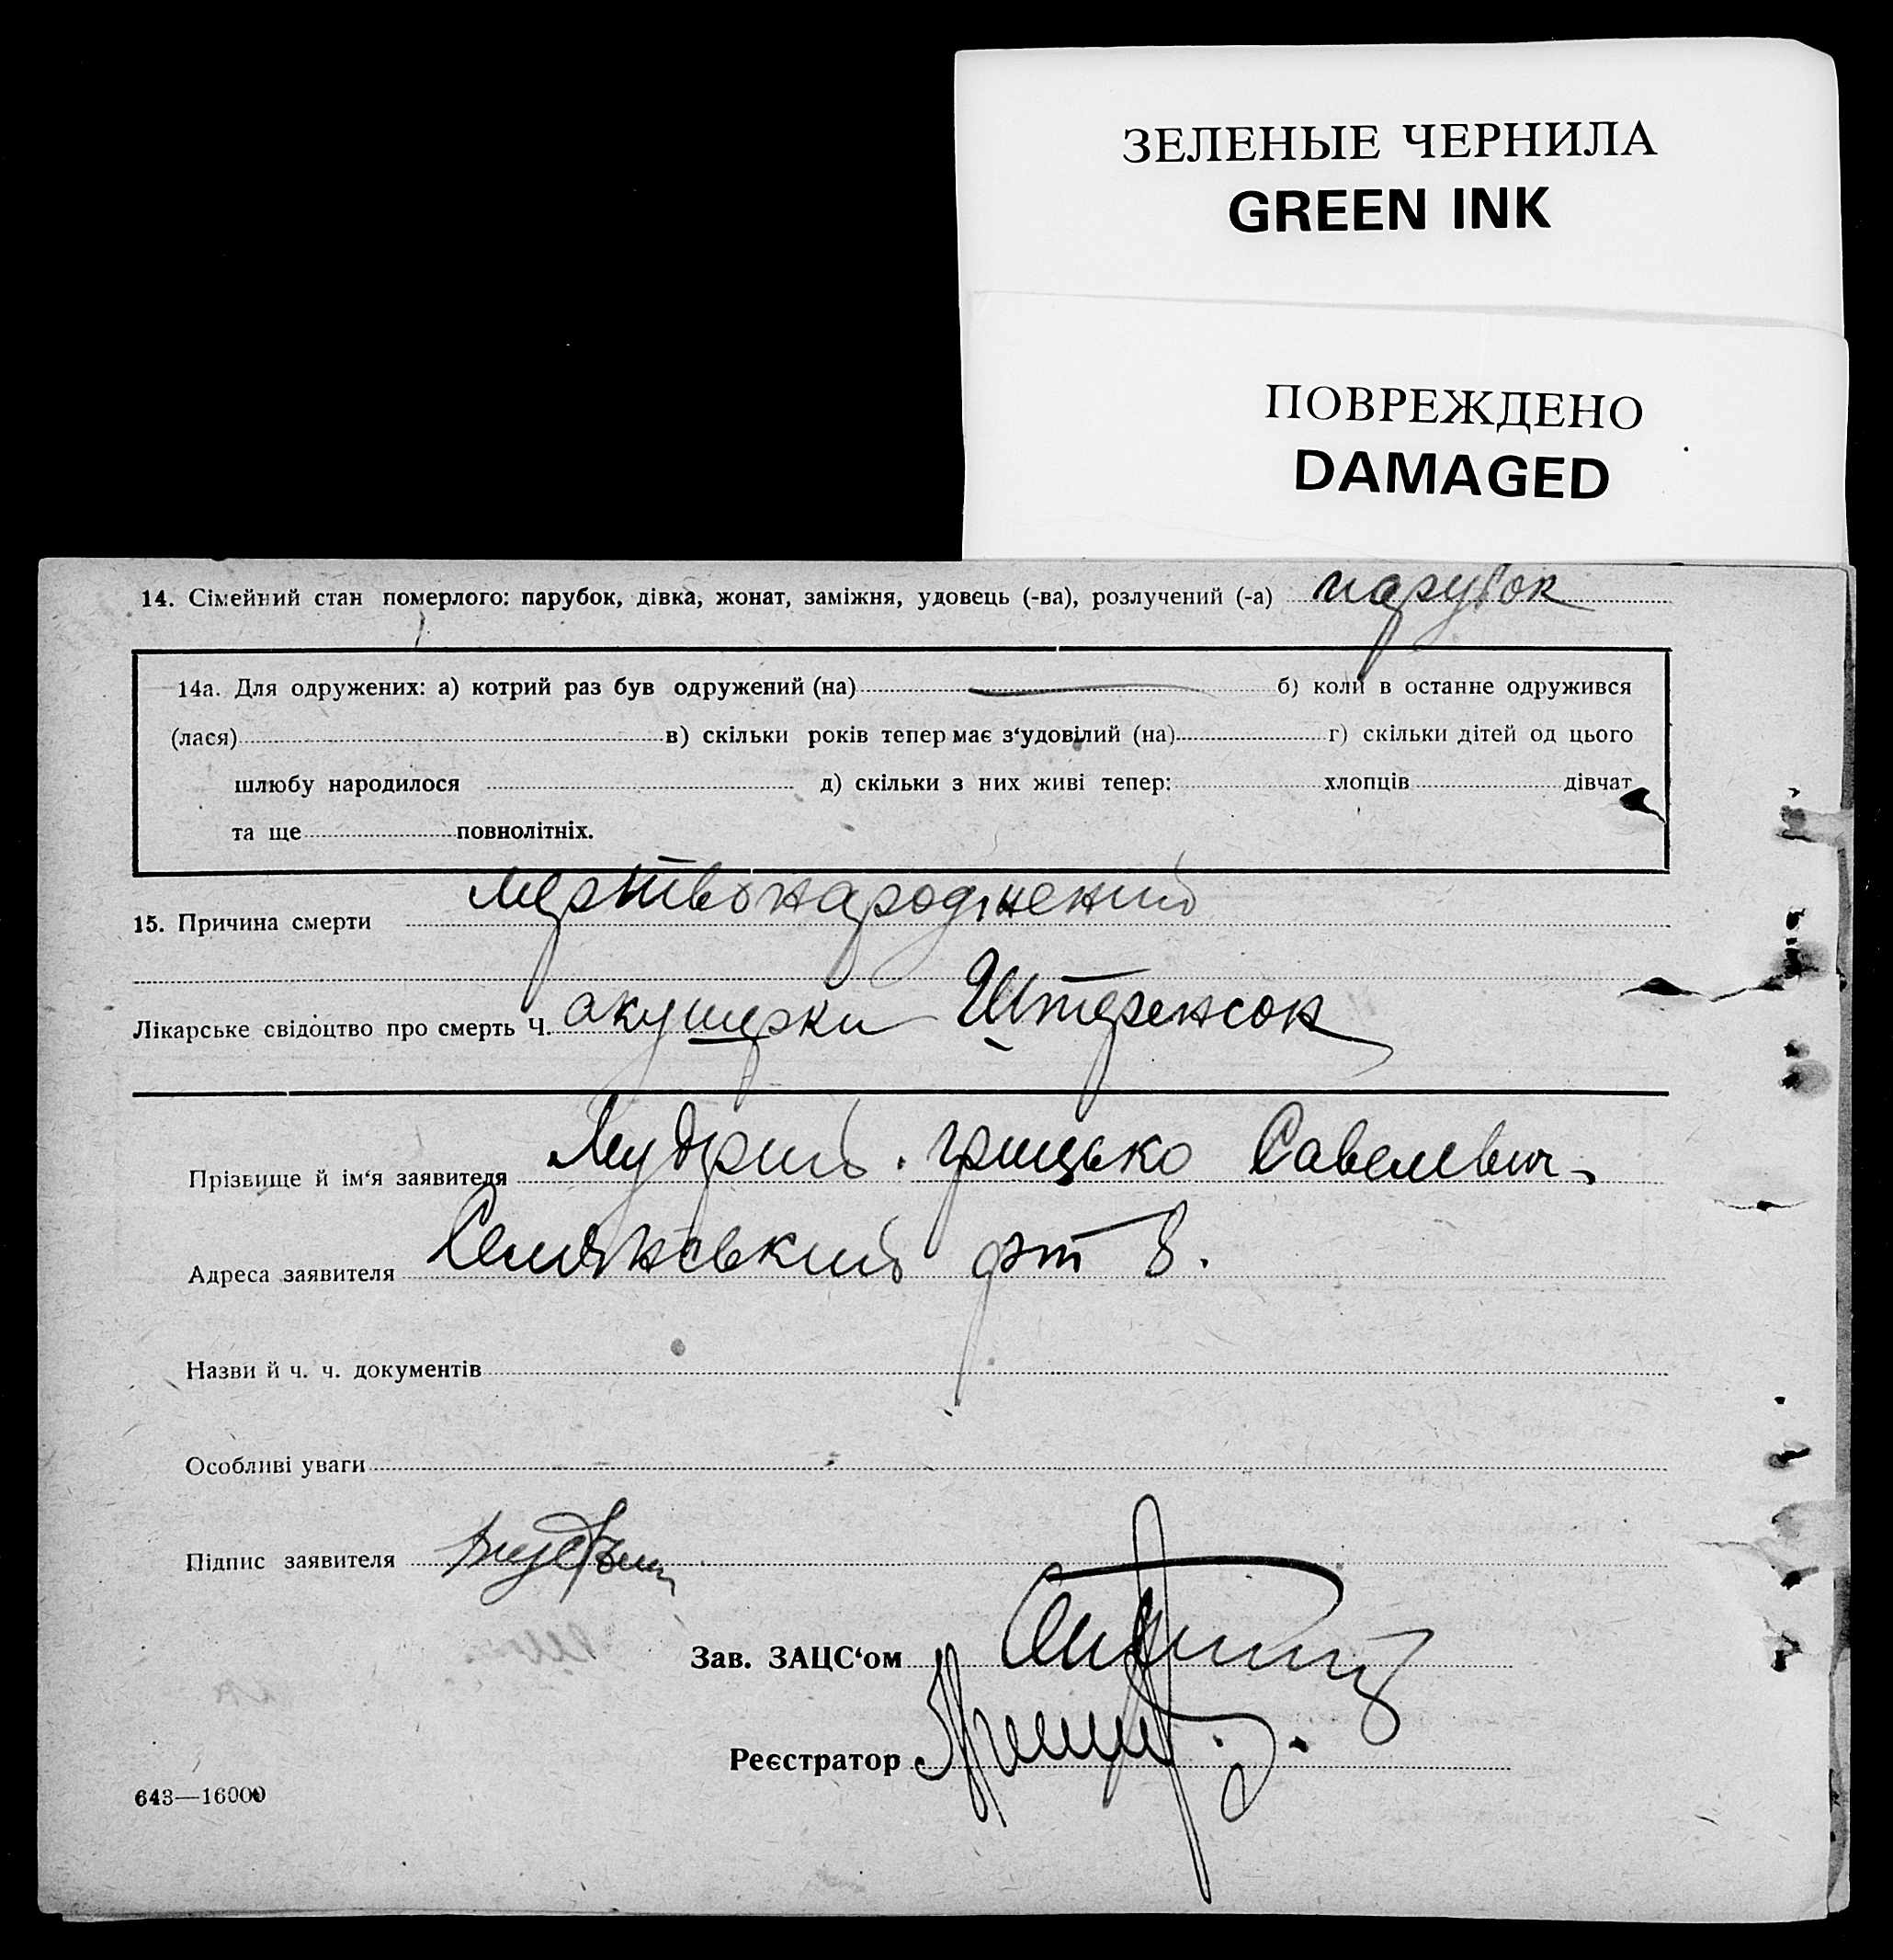 ЗЕЛЕНЫЕ ЧЕРНИЛА
GREEN INK
ПОВРЕЖДЕНО
DAMAGED
14. Сімейний стан померлого: парубок, дівка, жонат, заміжня, удовець (-ва), розлучений (-а) парубок
14а. Для одружених: а) котрий раз був одружений (на) б) коли в останнє одружився
(лася) в) скільки років тепер має з‘удовілий (на) г) скільки дітей од цього
шлюбу народилося д) скільки з них живі тепер: хлопців дівчат
та ще повнолітніх.
15. Причина смерти мертвонароджений
Лікарське свідоцтво про смерть Ч. акушерки Штеренсон
Прізвище й ім‘я заявителя Мудрий. Грицько Савелевич
Адреса заявителя 8.
Назви й ч. ч. документів
Особливі уваги
Підпис заявителя
Зав. ЗАЦС‘ом
Реєстратор
643—16000